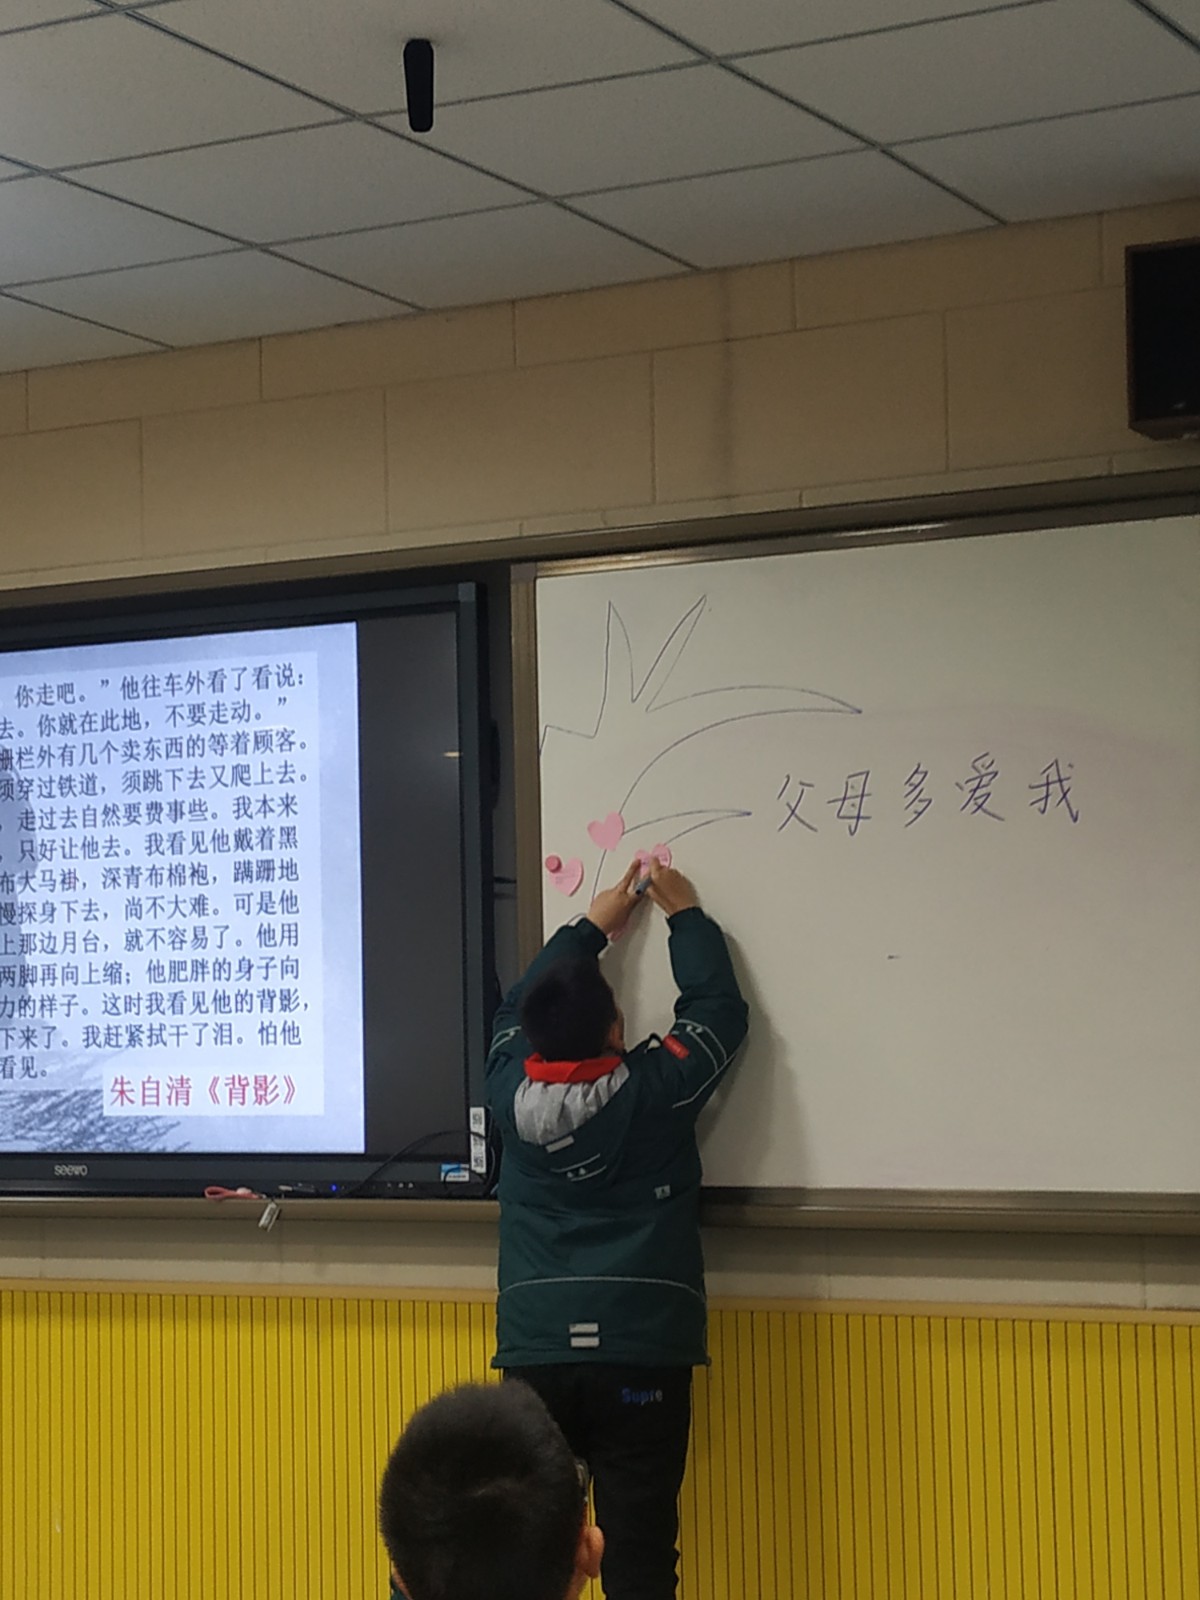 你走吧。”他往车外看了看说：
去。你就在此地，不要走动。”
栅栏外有几个卖东西的等着顾客。
须穿过铁道，须跳下去又爬上去。
，走过去自然要费事些。我本来
，只好让他去。我看见他戴着黑
布大马褂，深青布棉袍，蹒跚地
慢探身下去，尚不大难。可是他
上那边月台，就不容易了。他用
两脚再向上缩；他肥胖的身子向
力的样子。这时我看见他的背影，
下来了。我赶紧拭干了泪。怕他
看见。
朱自清《背影》
seewo
父母多爱我
Supre